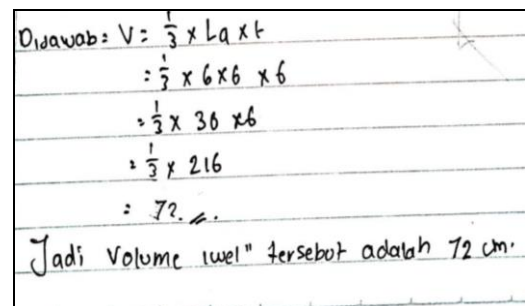 Didawab: V = 1/3 x La x t
= 1/3 x 6x6 x6
= 1/3 x 36 x6
= 1/3 x 216
= 72.
Jadi Volume iwel" tersebut adalah 72 cm.